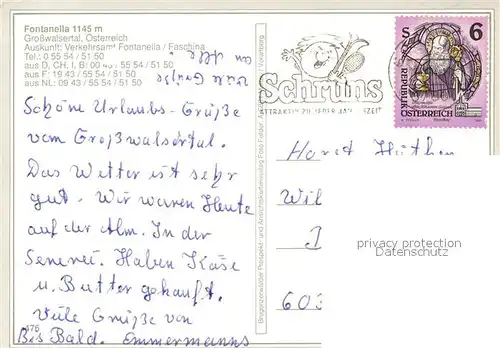 Fontanella 1145 m
Großwalsertal, Österreich
Auskunft: Verkehrsamt Fontanella / Faschina
Tel.: 0 55 54 / 51 50
aus D, CH, I, B: 00 43 - 55 54 / 51 50
aus F: 19 43 / 55 54 / 51 50
aus NL: 09 43 / 55 54 / 51 50
Schöne Urlaubs-Grüße
vom Großwalsertal.
Das Wetter ist sehr
gut. Wir waren Heute
auf der Alm. In der
Sennerei. Haben Käse
u. Butter gekauft.
Viele Grüße von
Bis Bald. Emmermanns
476
Schruns
ATTRAKTIV ZU JEDER JAHRESZEIT
6
S
REPUBLIK
ÖSTERREICH
Bregenzerwälder Prospekt- und Ansichtskartenverlag Foto Felder
Horst
Wil
603
privacy protection
Datenschutz